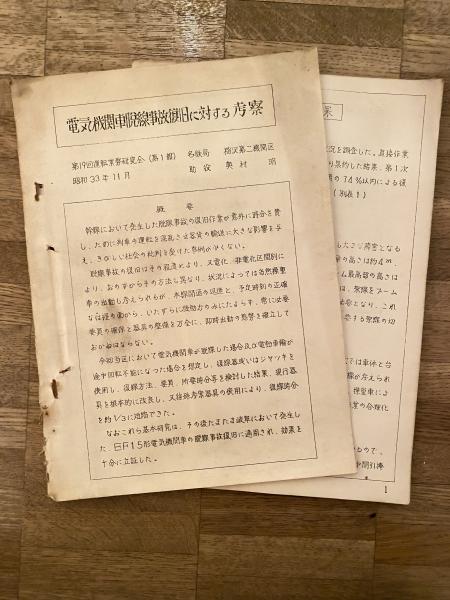 電気機関車脱線事故復旧に対する考察
第19回運転業務研究会(第1部) 名鉄局 稲沢第二機関区
昭和33年11月 助役 奥村 昭
概要
幹線において発生した脱線事故の復旧作業が意外に時分を費
し、ために列車の運転を混乱させ客貨の輸送に大きな影響を与
え、きびしい社会の批判を受けた事例が少くない。
脱線事故の復旧はその程度により、又電化、非電化区間別に
より、おのずからその方法も異なり、状況によっては各救援車
車の出動も考えられるが、本線開通の迅速と、予定時刻の正確
を
要員の確保と器具の整備を万全に、即時出動の態勢を確立して
おかねばならない。
今回当区において電気機関車が脱線した場合及び電動車輪が
途中回転不能になった場合を想定し、復線器或いはジャッキを
使用し、復旧方法、要員、所要時分等を検討した結果、現行器
具を根本的に改良し、又特殊考案器具の使用により、復旧時分
を約1/3に短縮できた。
なおこれら基本研究は、その後たまたま減車において発生し
た、EF15形電気機関車の脱線事故復旧に適用され、効果を
十分に立証した。
果
況を調査した。直接作業
集約した結果、第1次
の74%以内による復
(別表1)
も大きな障害となる
の高さは約4m
ム最高部の高さは
は、架線をブーム
となり、これ
する架線の切
では車体と台
が考えられ
操重車によ
業の合理化
ので、
中間引棒
1